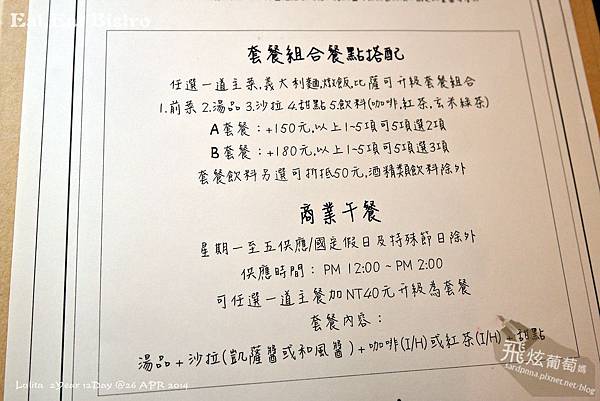 Eat Enjoy Bistro
套餐組合餐點搭配
任選一道主菜,義大利麵,燉飯,比薩可升級套餐組合
1.前菜 2.湯品 3.沙拉 4.甜點 5.飲料(咖啡,紅茶,玄米綠茶)
A套餐：+150元,以上1~5項可5項選2項
B套餐：+180元,以上1~5項可5項選3項
套餐飲料另選可折抵50元,酒精類飲料除外
商業午餐
星期一至五供應/國定假日及特殊節日除外
供應時間： PM 12:00 ~ PM 2:00
可任選一道主餐加NT40元升級為套餐
套餐內容：
湯品 + 沙拉(凱薩醬或和風醬) + 咖啡(I/H)或紅茶(I/H) 甜點
飛炫葡萄媽
sardpnna.pixnet.net/blog
Lolita 2Year 12Day @26 APR 2014